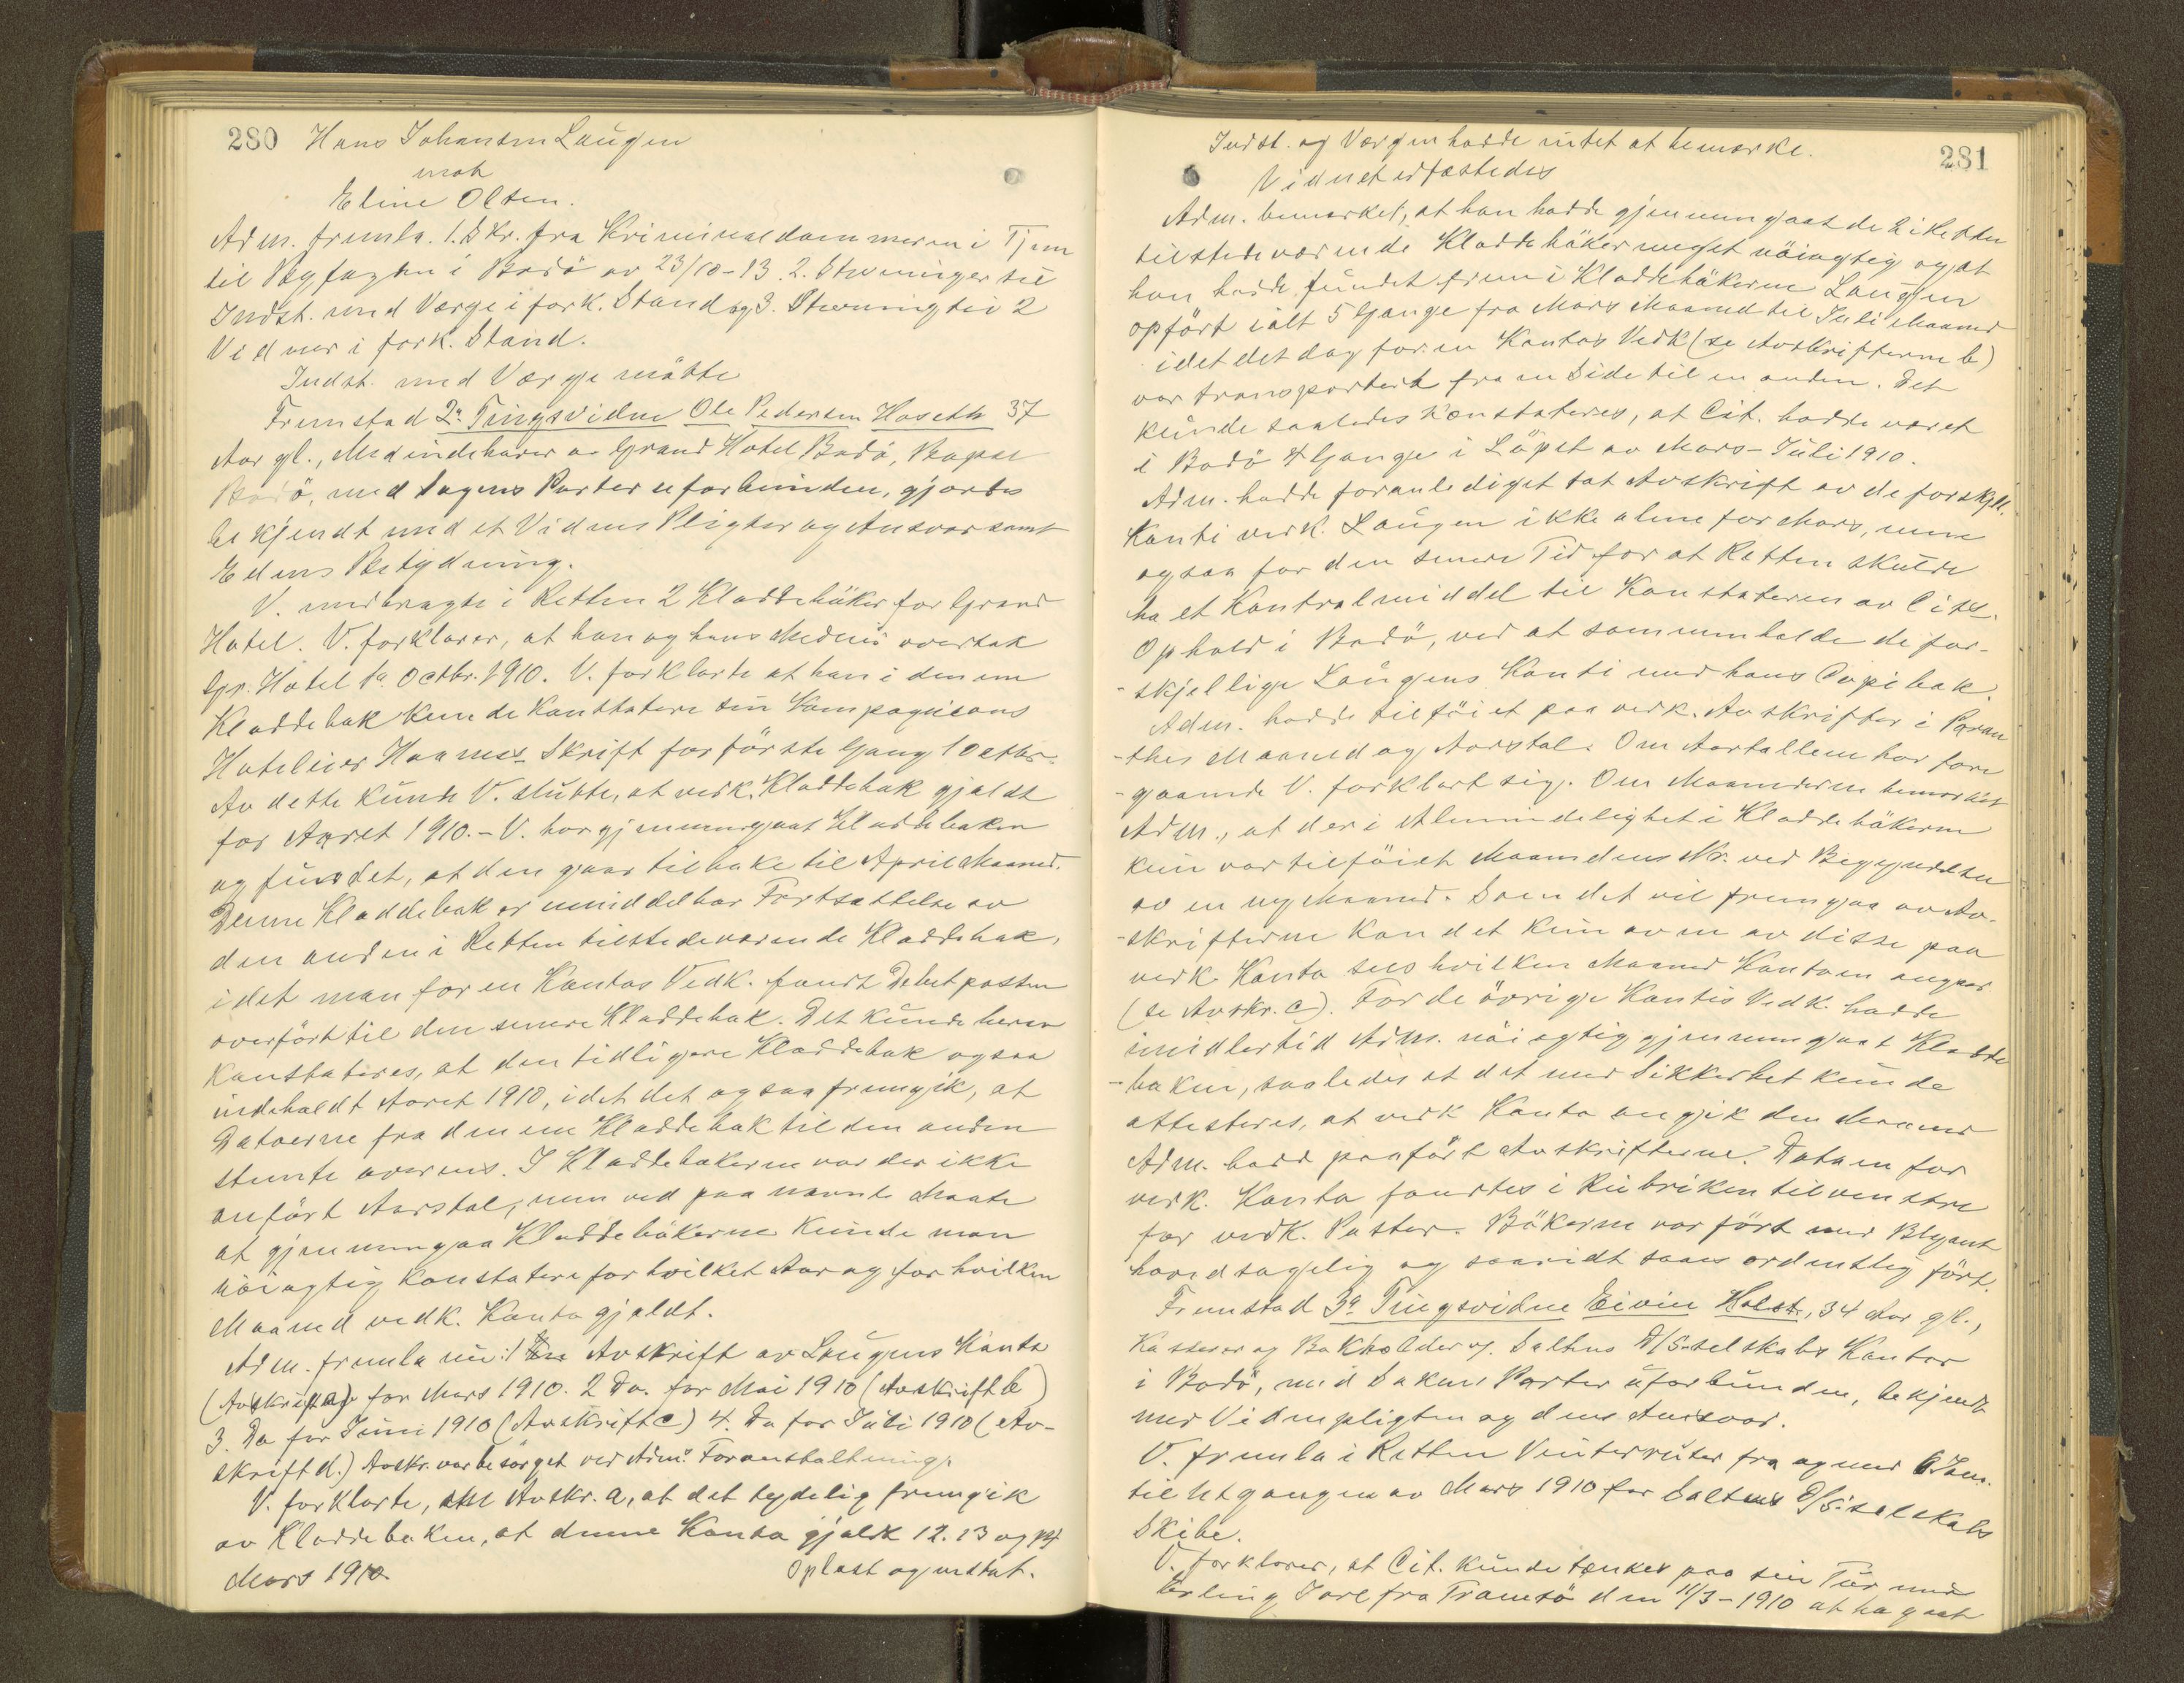 280 Hans Johansen Laugen
mot
Eline Olsen.
Adm. fremla. 1. Skr. fra Kriminaldommeren i Tjen
til Byfogden i Bodö av 23/10-13. 2. Stevninger til
Indst. med Værge i fork. Stand og 3. Stevning til 2
Vidner i fork. Stand.
Indst. med Værge mötte
Fremstod 2. Tingsvidne Ole Pedersen Haseth 37
Aar gl., Medindehaver av Grand Hotel Bodö, Bopæl
Bodö, med Sagens Parter uforbunden, gjordes
bekjendt med et Vidnes Pligter og Ansvar samt
Edens Betydning.
V. medbragte i Retten 2 Kladdeböker for Grand
Hotel. V. forklarer, at han og hans Medeier overtok
Gr. Hotel 1. Octbr. 1910. V. forklarte at han i den ene
Kladdebok kunde konstatere sin Kompagnions
Hotelier Haarnes Skrift for förste Gang 1 Octbr.
Av dette kunde V. slutte, at vedk. Kladdebok gjaldt
for Aaret 1910. - V. har gjennemgaat Kladdeboken
og fundet, at den gaar tilbake til April Maaned.
Denne Kladdebok er umiddelbar Fortsættelse av
den anden i Retten tilstedeværende Kladdebok,
idet man for en Kontos Vedk. fandt Debetposten
overfört til den senere Kladdebok. Det kunde herav
konstateres, at den tidligere Kladdebok ogsaa
indeholdt Aaret 1910, idet det ogsaa fremgik, at
Datoerne fra den ene Kladdebok til den anden
stemte overens. I Kladdebökerne var der ikke
anfört Aarstal, men ved paa nævnte Maate
at gjennemgaa Kladdebökerne kunde man
nöiagtig konstatere for hvilket Aar og for hvilken
Maaned vedk. Konto gjaldt.
Adm. fremla nu: 1 Avskrift av Laugens Konto
(Avskrift a) for Mars 1910. 2 Do. for Mai 1910 (Avskrift b)
3. Do for Juni 1910 (Avskrift c) 4. Do for Juli 1910 (Av-
skrift d.) Avskr. var besörget ved Adm.s Foranstaltning.
V. forklarte, Avskr. a, at det tydelig fremgik
av Kladdeboken, at denne Konto gjaldt 12. 13 og 14
Mars 1910. Oplæst og vedtat.
281
Indst. og Værgen hadde intet at bemærke.
Vidnet edfæstedes
Adm. bemærket, at han hadde gjennemgaat de 2 i Retten
tilstedeværende Kladdeböker meget nöiagtig og at
han hadde fundet frem i Kladdebökerne Laugen
opfört ialt 5 Gange fra Mars Maaned til Juli Maaned
idet det dog for en Kontos Vedk (se Avskrifterne b)
var transportert fra en Side til en anden. Det
kunde saaledes konstateres, at Cit. hadde været
i Bodö 4 Gange i Löpet av Mars-Juli 1910.
Adm. hadde foranlediget tat Avskrift av de forskjell.
Konti vedk. Laugen ikke alene for Mars, men
ogsaa for den senere Tid for at Retten skulde
ha et Kontrolmiddel til Konstateren av Cits.
Ophold i Bodö, ved at sammenholde de for-
-skjellige Laugens Konti med hans Copibok.
Adm. hadde tilföiet paa vedk. Avskrifter i Paren
-thes Maaned og Aarstal. Om Aartallene har fore
-gaaende V. forklart sig. Om Maanederne bemærket
Adm., at der i Almindelighet i Kladdebökerne
kun var tilföiet Maanedens Nr. ved Begyndelsen
av en ny Maaned. Som det vil fremgaa av Av-
-skrifterne kan det kun av en av disse paa
vedk. Konto sees hvilken Maaned Kontoen angaar
(se Avskr. c). For de övrige Kontis Vedk. hadde
imidlertid Adm. nöiagtig gjennemgaat Kladde
-boken, saaledes at det med Sikkerhet kunde
attesteres, at vedk Konto angik den Maaned
Adm. hadd paafört Avskrifterne. Datoen for
vedk. Konto fandtes i Rubriken tilvenstre
for vedk. Poster. Bökerne var fört med Blyant
hovedsagelig og saavidt saaes ordentlig fört.
Fremstod 3. Tingsvidne Eivin Holst, 34 Aar gl.,
Kasserer og Bokholder v. Saltens D/S-selskabs Kontor
i Bodö, med Sakens Parter uforbunden, bekjendt
med Vidnepligten og dens Ansvar.
V. fremla i Retten Vinterruter fra og med 1 Jan.
til Utgangen av Mars 1910 for Saltens D/S.selskabs
Skibe.
V. forklarer, at Cit. kunde tænkes paa sin Tur med
Erling Jarl fra Tromsö den 11/3-1910 at ha gaat